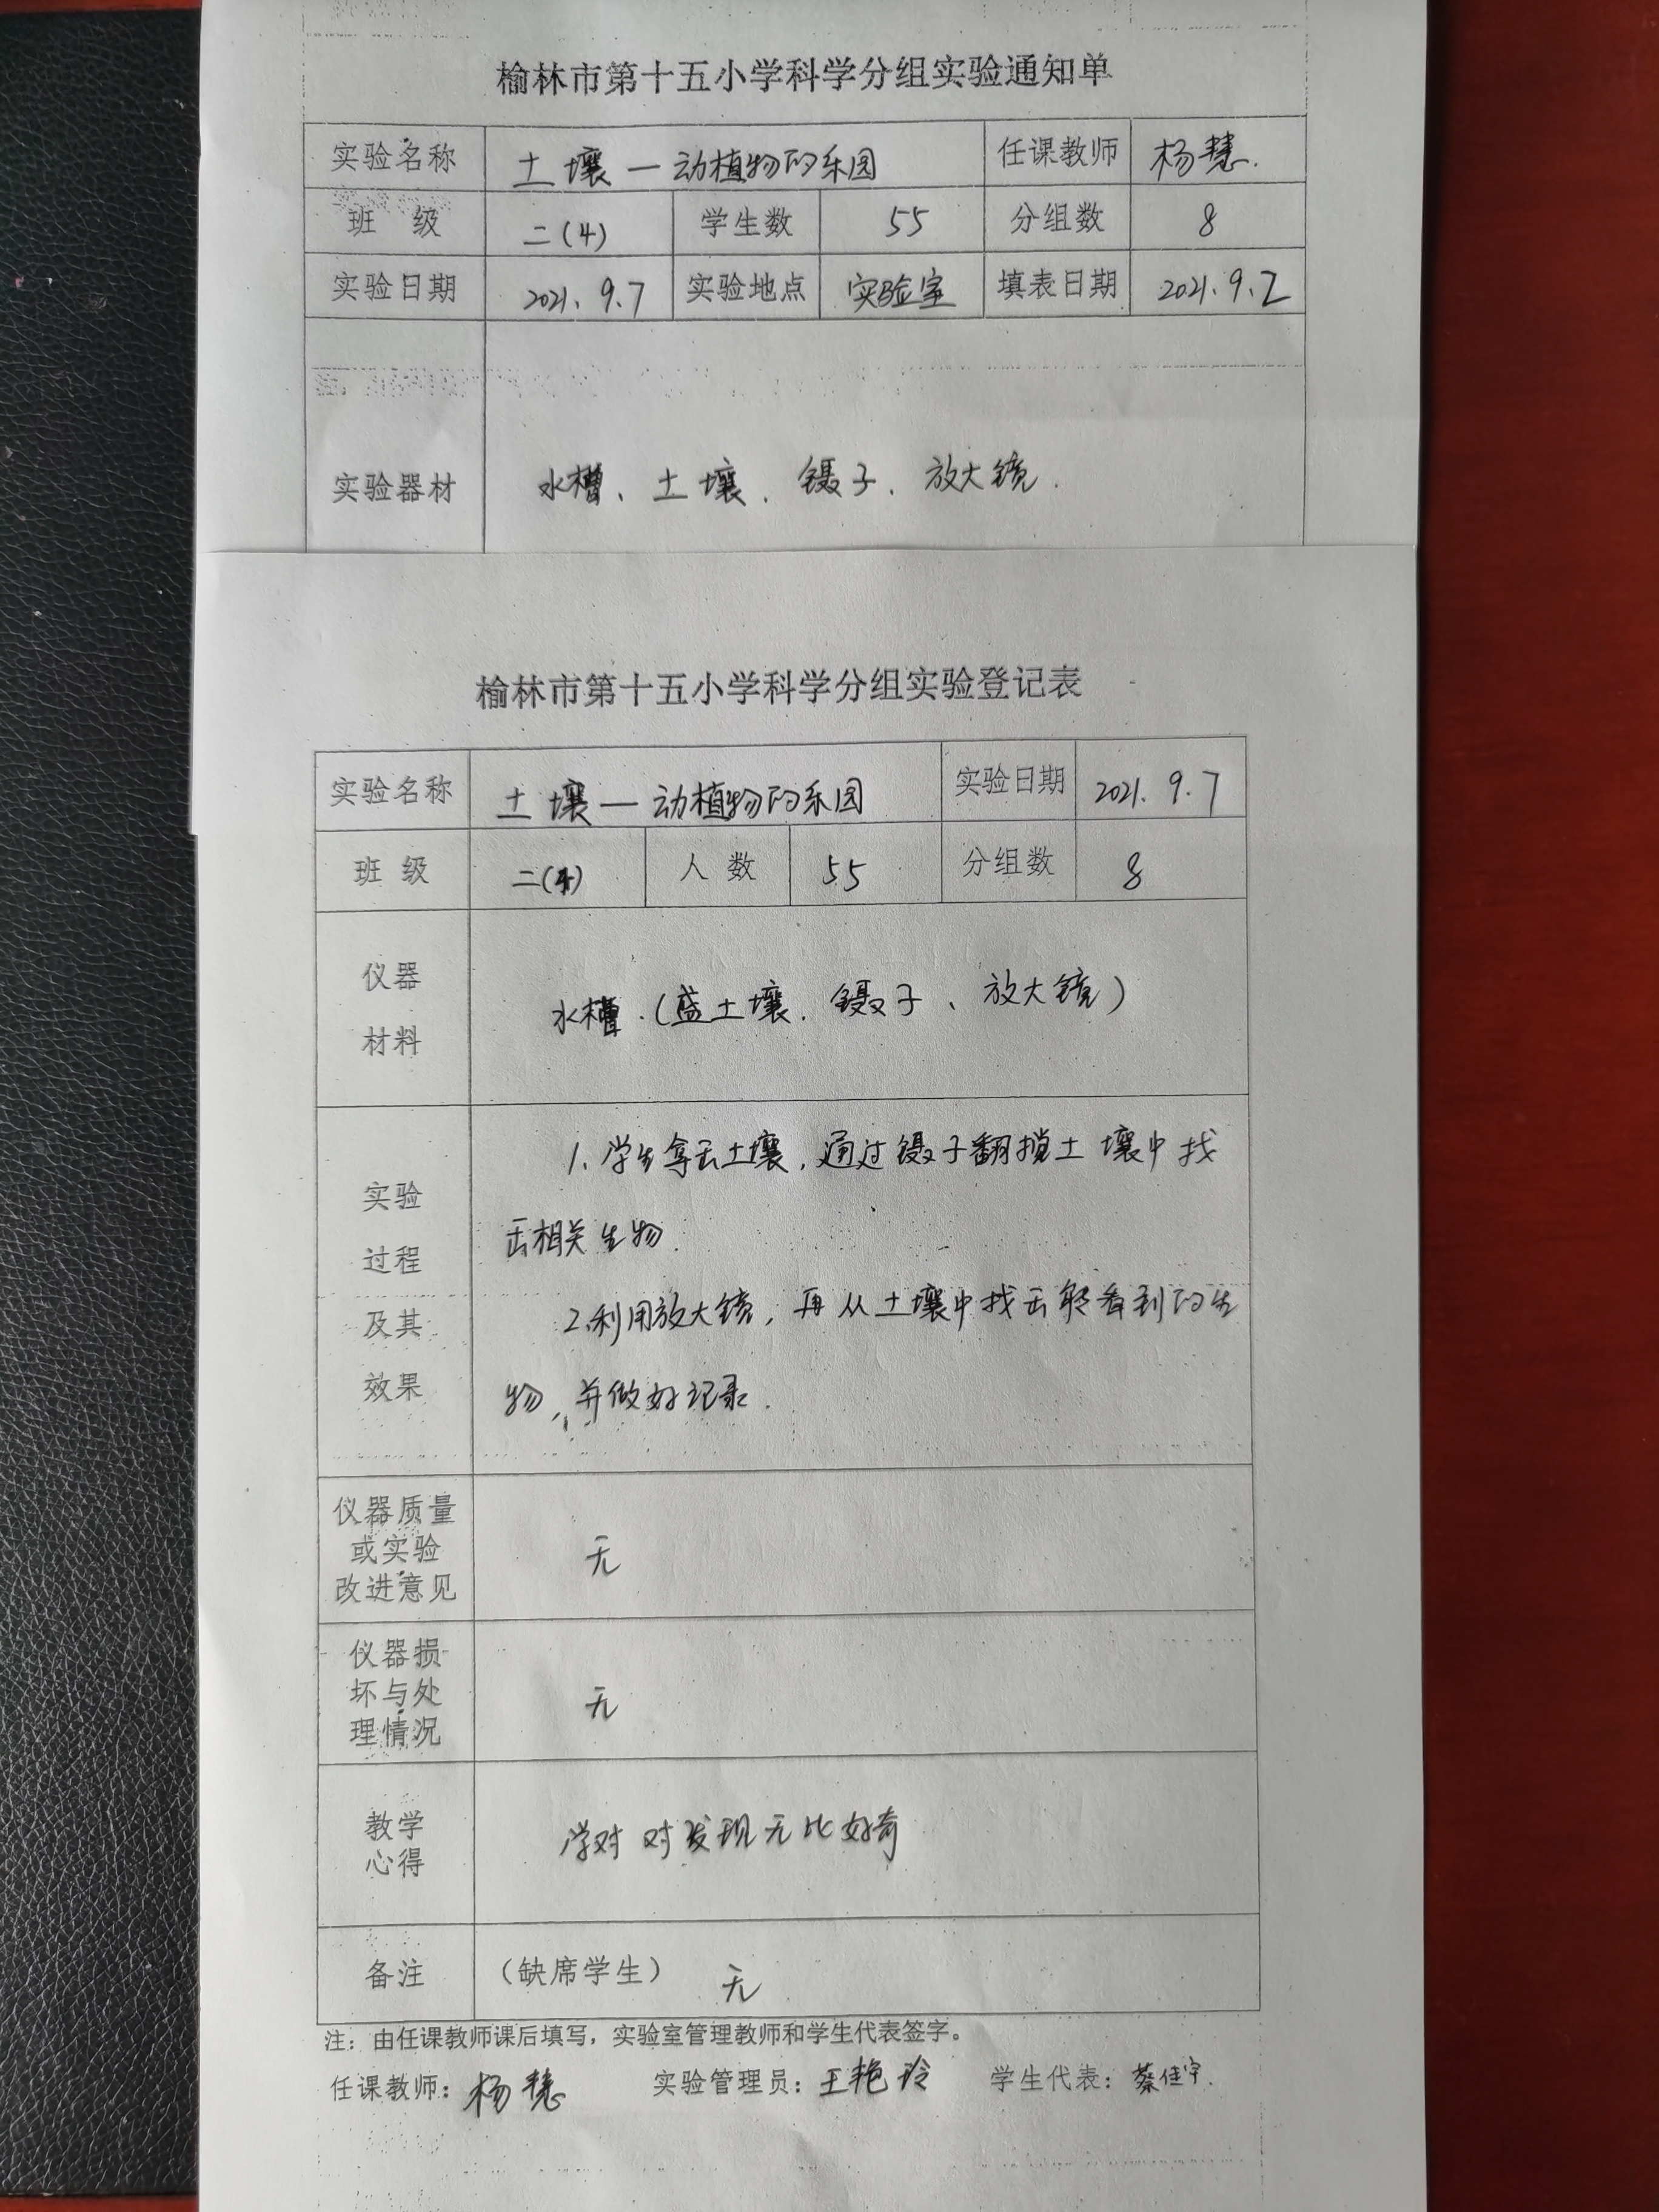 榆林市第十五小学科学分组实验通知单
实验名称 土壤—动植物的乐园 任课教师 杨慧.
班 级 二(4) 学生数 55 分组数 8
实验日期 2021.9.7 实验地点 实验室 填表日期 2021.9.2
实验器材 水槽、土壤、镊子、放大镜.
榆林市第十五小学科学分组实验登记表
实验名称 土壤—动植物的乐园 实验日期 2021.9.7
班 级 二(4) 人 数 55 分组数 8
仪器
材料
水槽.(盛土壤、镊子、放大镜)
实验
过程
及其
效果
1、学生拿出土壤,通过镊子翻搅土壤中找
出相关生物.
2、利用放大镜,再从土壤中找出能看到的生
物,并做好记录.
仪器质量
或实验
改进意见
无
仪器损
坏与处
理情况
无
教学
心得
学对对发现无比好奇
备注 (缺席学生) 无
注:由任课教师课后填写,实验室管理教师和学生代表签字。
任课教师:杨慧 实验管理员:王艳玲 学生代表:蔡佳宇.